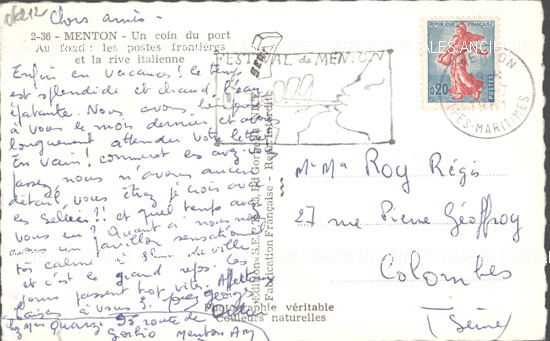 06212
Chers amis -
2-36 - MENTON - Un coin du port
Au fond : les postes frontières
et la rive italienne
Enfin en vacances ! le temps
est splendide et chaud, l'eau
épatante. Nous avons bien pensé
à vous le mois dernier et avons
longuement attendu votre lettre
En vain ! comment les avez-vous
passez nous n'avons aucun
détail, vous étiez je crois avec
les !! et quel temps avez
vous eu ? Quant à nous nous
avons un pavillon sensationnel
très calme de ville
et c'est le grand repos. Les
jours passent trop vite. Affectueux
baisers à vous 3. Georges
chez Mme Quarzi 95 route de
Gorbio Menton AM
FESTIVAL de MENTON
MENTON
ALPES-MARITIMES
REPUBLIQUE FRANÇAISE
0,20
POSTES
Fabrication Française - Repr. Interdite
Photographie véritable
Couleurs naturelles
Mr Me Roy Régis
27 rue Pierre Géoffroy
Colombes
(Seine)